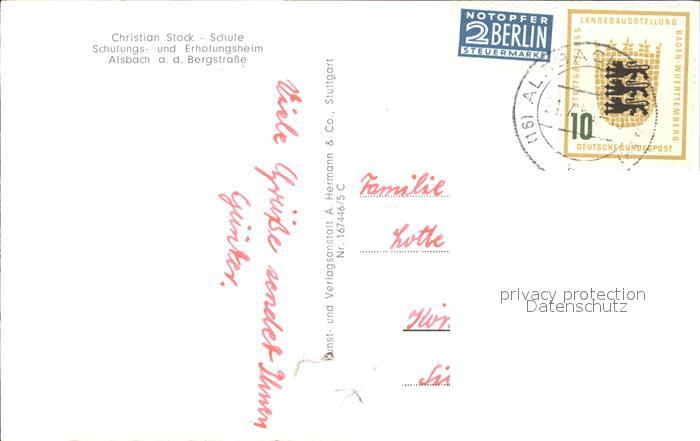 Christian Stock - Schule
Schulungs- und Erholungsheim
Alsbach a. d. Bergstraße
Viele Grüße sendet Ihnen
Günter.
Kunst- und Verlagsanstalt A. Hermann & Co., Stuttgart
Nr. 167446/5 C
NOTOPFER
2 BERLIN
STEUERMARKE
STUTTGART 1955 LANDESAUSSTELLUNG BADEN-WUERTTEMBERG
10
DEUTSCHE BUNDESPOST
(16) ALSBA
Familie
Lotte
privacy protection
Datenschutz